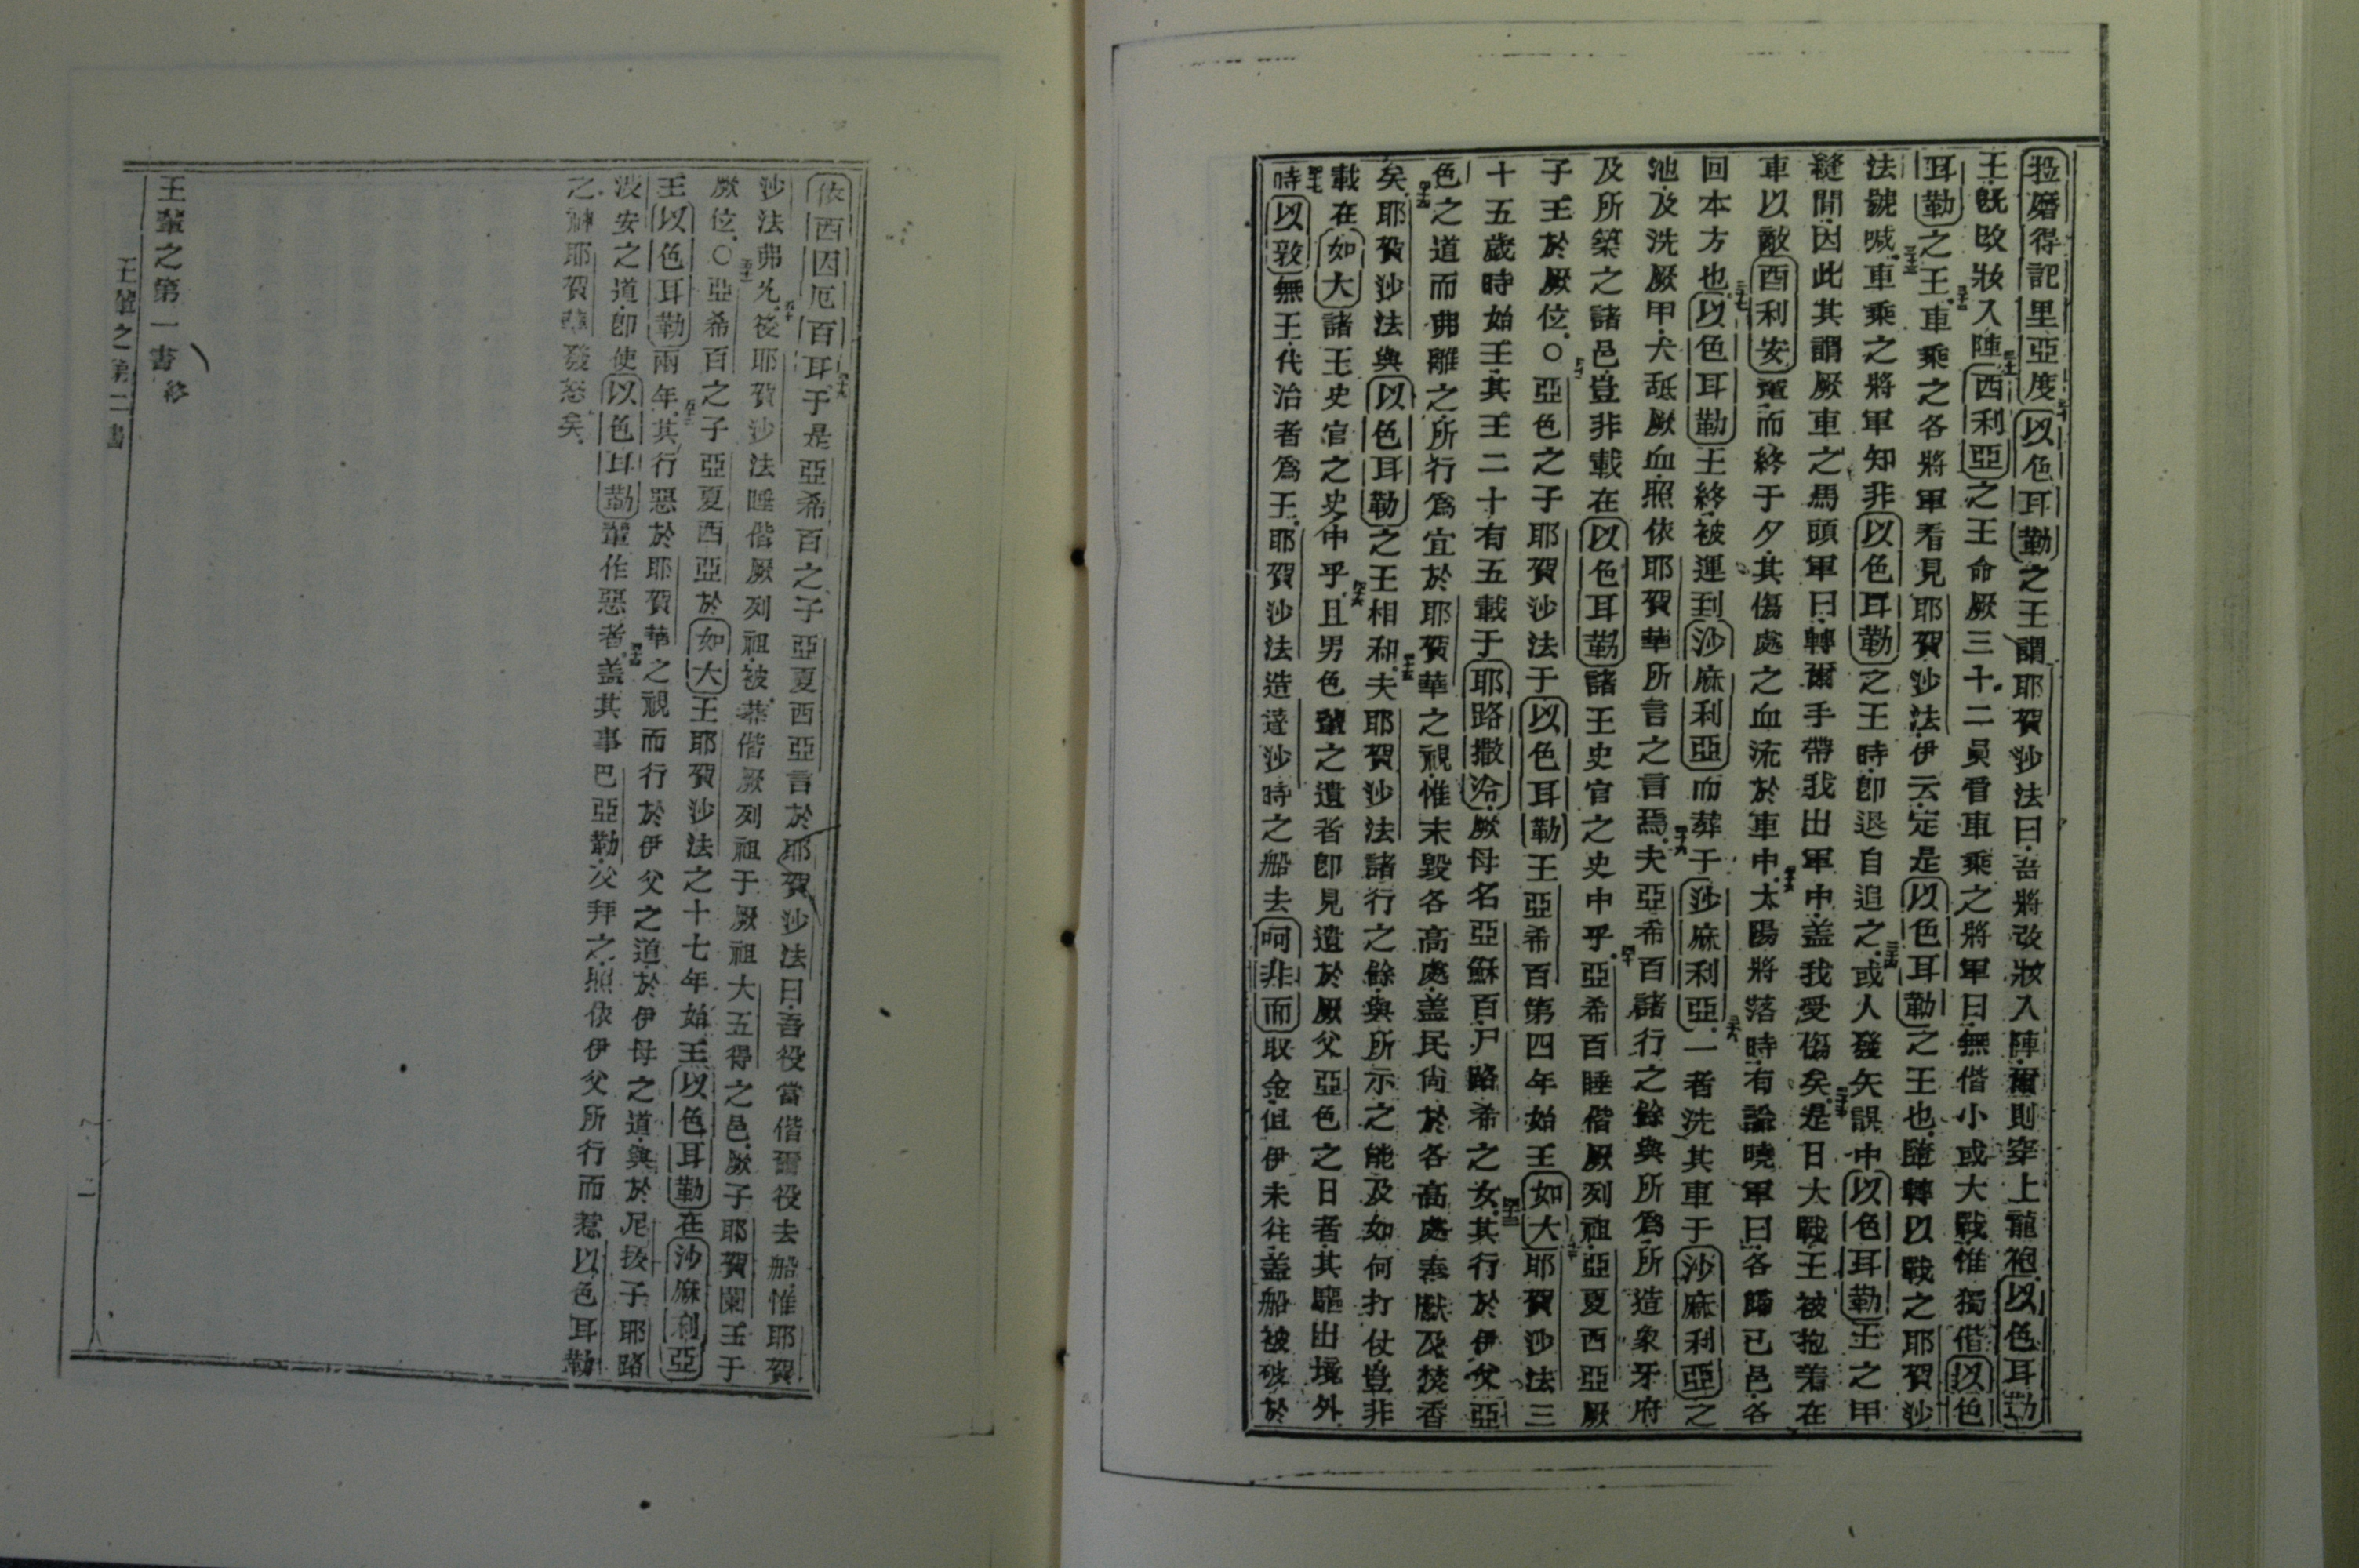 拉磨得記里亞度以色耳勒之王謂耶賀沙法曰吾將改妝入陣爾則穿上龍袍以色耳勒
王既改妝入陣西利亞之王命厥三十二員管車乘之將軍曰無偕小或大戰惟獨偕以色
耳勒之王車乘之各將軍看見耶賀沙法伊云定是以色耳勒之王也隨轉以戰之耶賀沙
法號喊車乘之將軍知非以色耳勒之王時即退自追之或人發矢誤中以色耳勒王之甲
縫間因此其謂厥車之馬頭軍曰轉爾手帶我出軍中盖我受傷矣是日大戰王被抱着在
車以敵西利安輩而終于夕其傷處之血流於車中太陽將落時有諭曉軍曰各歸己邑各
回本方也以色耳勒王終被運到沙麻利亞而葬于沙麻利亞一者洗其車于沙麻利亞之
池及洗厥甲犬舐厥血照依耶賀華所言之言焉夫亞希百諸行之餘與所為所造象牙府
及所築之諸邑豈非載在以色耳勒諸王史官之史中乎亞希百睡偕厥列祖亞夏西亞厥
子王於厥位○亞色之子耶賀沙法于以色耳勒王亞希百第四年始王如大耶賀沙法三
十五歲時始王其王二十有五載于耶路撒冷厥母名亞穌百尸路希之女其行於伊父亞
色之道而弗離之所行為宜於耶賀華之視惟未毀各高處盖民尚於各高處奉獻及焚香
矣耶賀沙法與以色耳勒之王相和夫耶賀沙法諸行之餘與所示之能及如何打仗豈非
載在如大諸王史官之史中乎且男色輩之遺者即見遺於厥父亞色之日者其驅出境外
時以敦無王代治者為王耶賀沙法造達沙時之船去呵非而取金但伊未往盖船被破於
依西因厄百耳于是亞希百之子亞夏西亞言於耶賀沙法曰吾役當偕爾役去船惟耶賀
沙法弗允後耶賀沙法睡偕厥列祖被葬偕厥列祖于厥祖大五得之邑厥子耶賀闌王于
厥位○亞希百之子亞夏西亞於如大王耶賀沙法之十七年始王以色耳勒在沙麻利亞
王以色耳勒兩年其行惡於耶賀華之視而行於伊父之道於伊母之道與於尼拔子耶路
波安之道即使以色耳勒輩作惡者盖其事巴亞勒及拜之照依伊父所行而惹以色耳勒
之神耶賀華發怒矣
王輩之第一書終
王輩之第二書